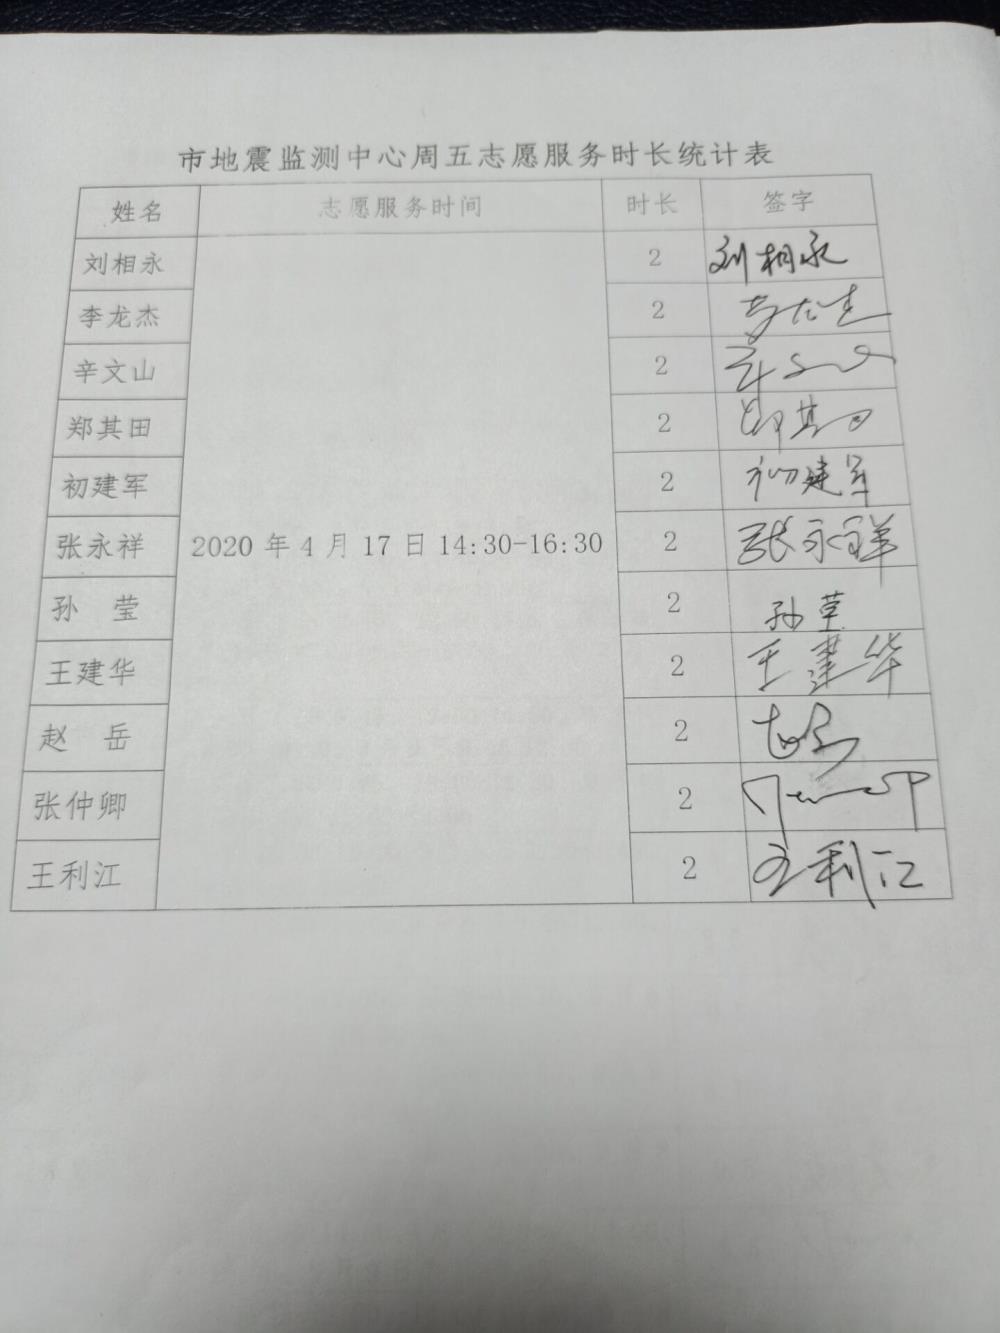 市地震监测中心周五志愿服务时长统计表
姓名 志愿服务时间 时长 签字
刘相永 2 刘相永
李龙杰 2 李龙杰
辛文山 2
郑其田 2 郑其田
初建军 2 初建军
张永祥 2020 年 4 月 17 日 14:30-16:30 2 张永祥
孙 莹 2 孙莹
王建华 2 王建华
赵 岳 2 赵岳
张仲卿 2
王利江 2 王利江